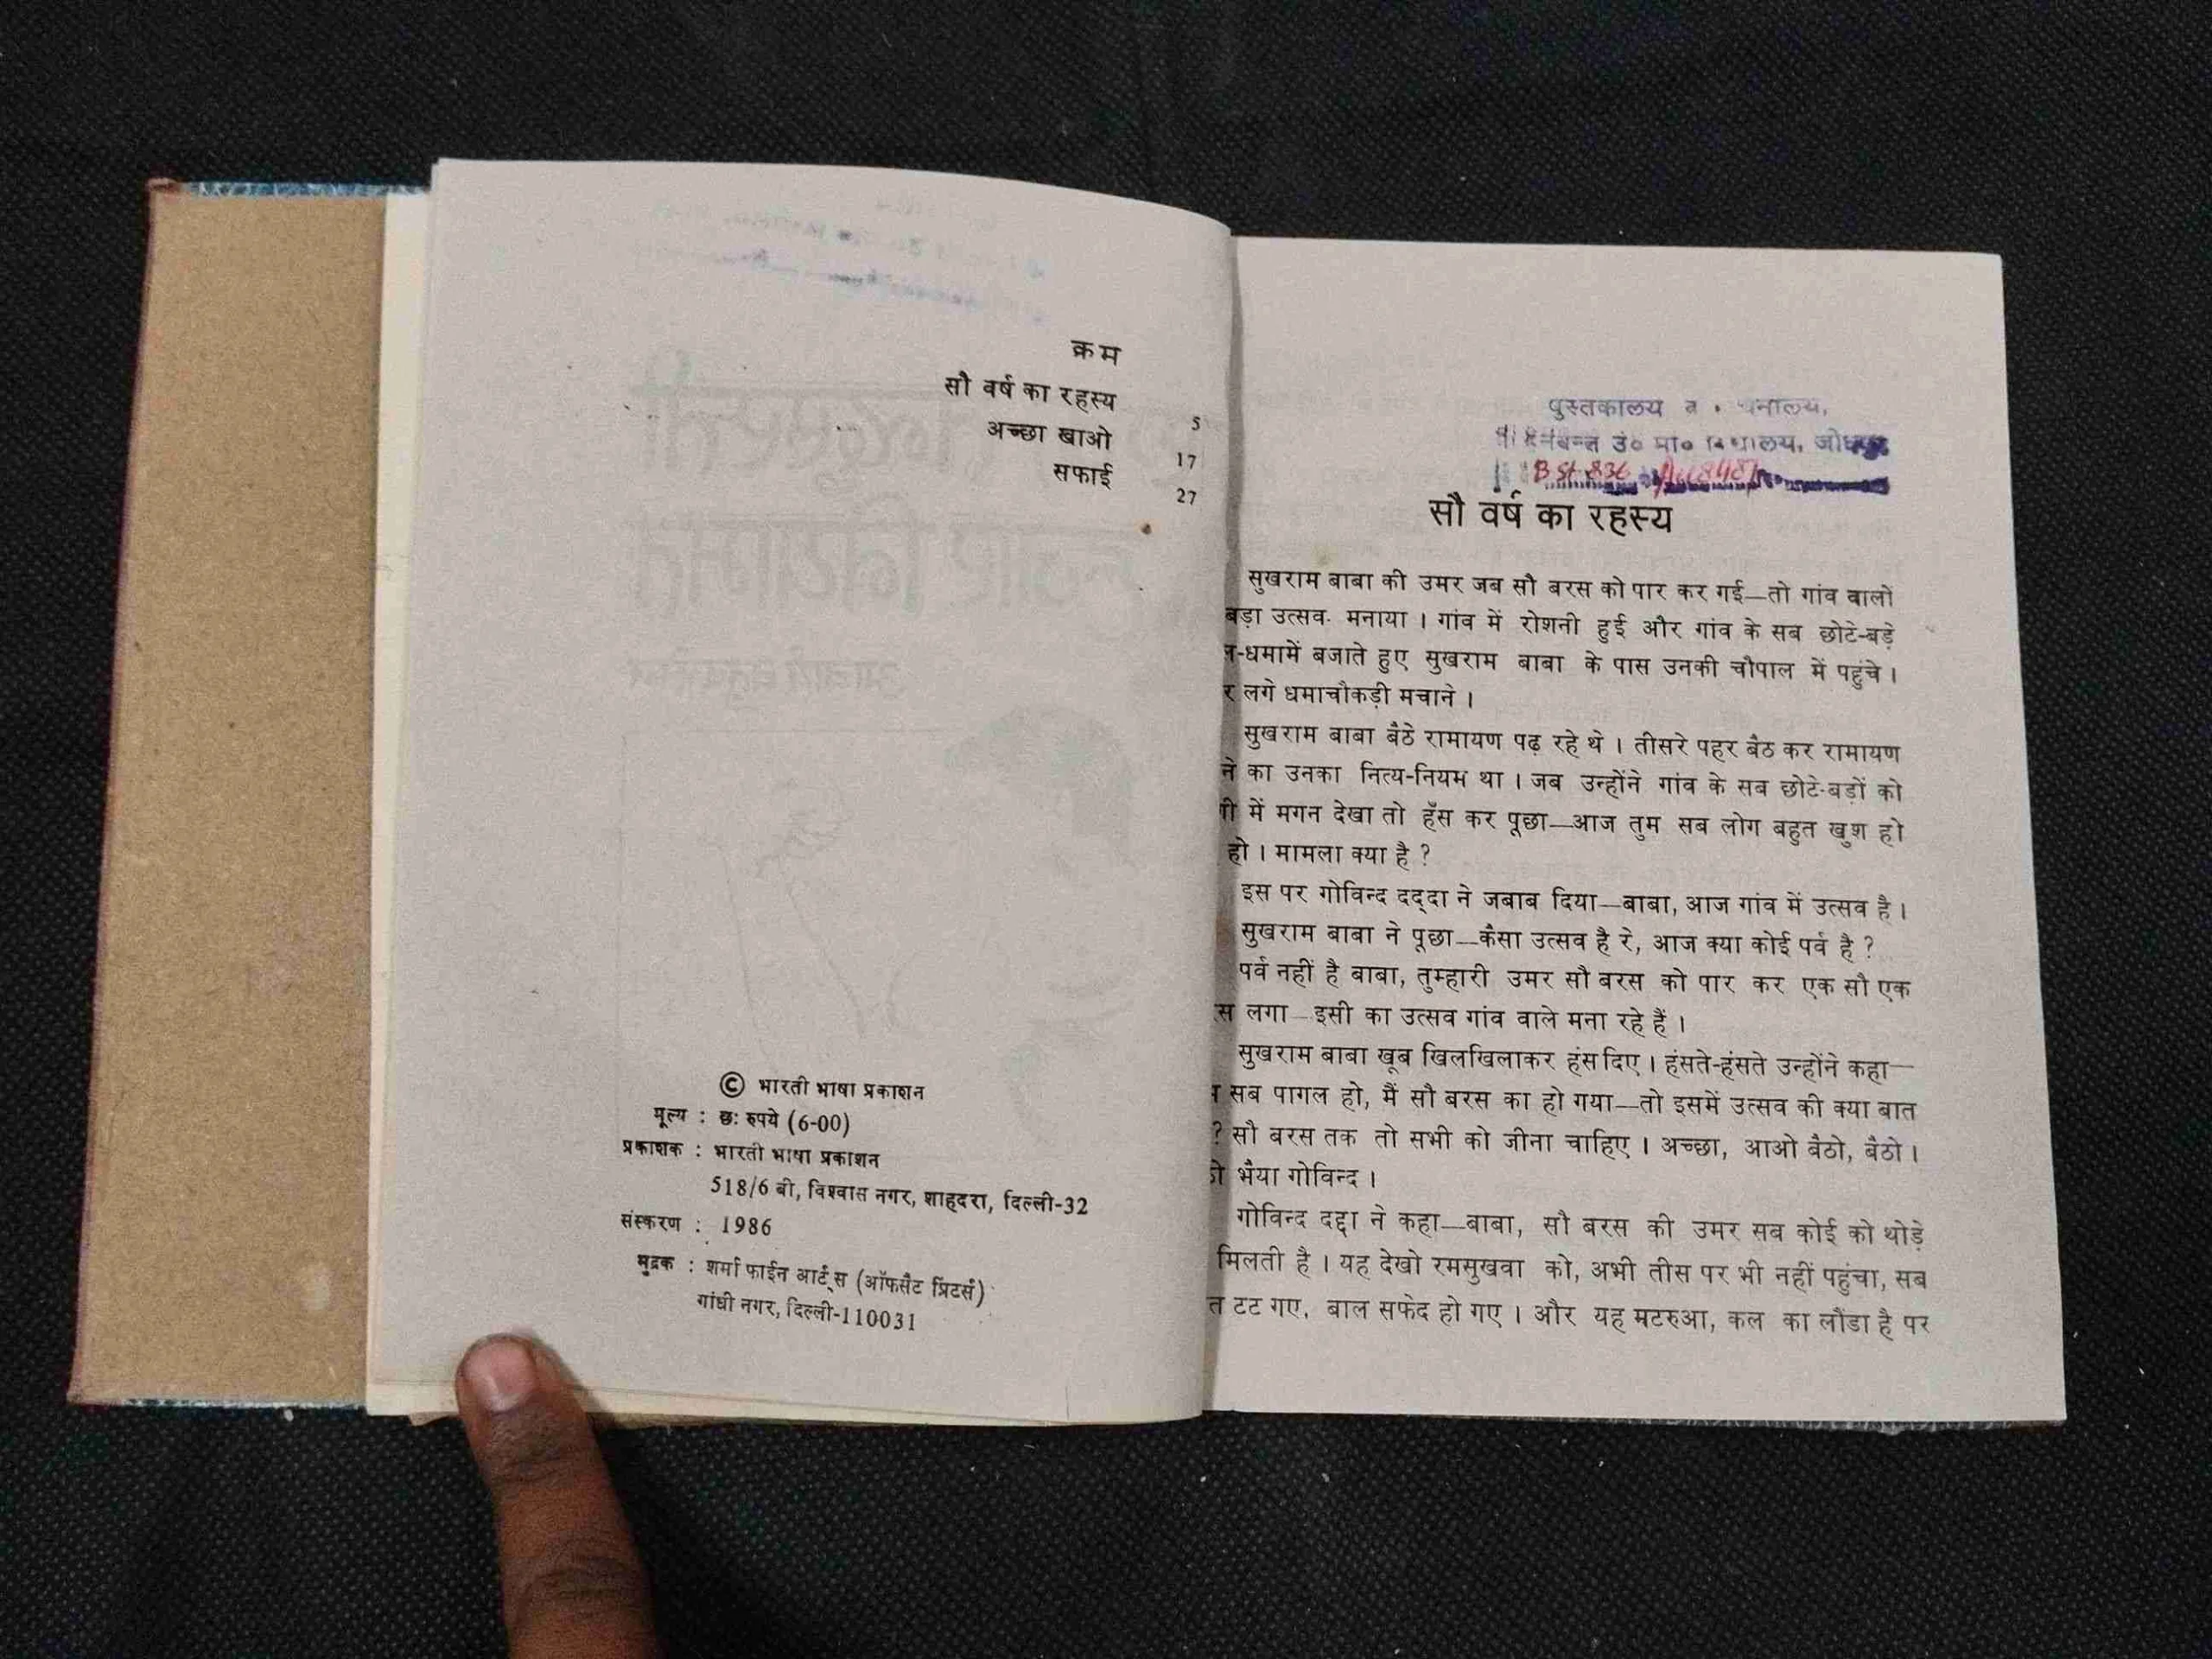 क्रम
सौ वर्ष का रहस्य 5
अच्छा खाओ 17
सफाई 27
© भारती भाषा प्रकाशन
मूल्य : छः रुपये (6-00)
प्रकाशक : भारती भाषा प्रकाशन
518/6 बी, विश्वास नगर, शाहदरा, दिल्ली-32
संस्करण : 1986
मुद्रक : शर्मा फाईन आर्ट्स (ऑफसैट प्रिंटर्स)
गांधी नगर, दिल्ली-110031
पुस्तकालय
उ० मा०
सौ वर्ष का रहस्य
सुखराम बाबा की उमर जब सौ बरस को पार कर गई—तो गांव वालों
बड़ा उत्सव मनाया । गांव में रोशनी हुई और गांव के सब छोटे-बड़े
-धमामें बजाते हुए सुखराम बाबा के पास उनकी चौपाल में पहुंचे ।
र लगे धमाचौकड़ी मचाने ।
सुखराम बाबा बैठे रामायण पढ़ रहे थे । तीसरे पहर बैठ कर रामायण
ने का उनका नित्य-नियम था । जब उन्होंने गांव के सब छोटे-बड़ों को
में मगन देखा तो हँस कर पूछा—आज तुम सब लोग बहुत खुश हो
हो । मामला क्या है ?
इस पर गोविन्द दद्‌दा ने जबाब दिया—बाबा, आज गांव में उत्सव है ।
सुखराम बाबा ने पूछा—कैसा उत्सव है रे, आज क्या कोई पर्व है ?
पर्व नहीं है बाबा, तुम्हारी उमर सौ बरस को पार कर एक सौ एक
स लगा—इसी का उत्सव गांव वाले मना रहे हैं ।
सुखराम बाबा खूब खिलखिलाकर हंस दिए । हंसते-हंसते उन्होंने कहा—
सब पागल हो, मैं सौ बरस का हो गया—तो इसमें उत्सव की क्या बात
? सौ बरस तक तो सभी को जीना चाहिए । अच्छा, आओ बैठो, बैठो ।
भैया गोविन्द ।
गोविन्द दद्दा ने कहा—बाबा, सौ बरस की उमर सब कोई को थोड़े
मिलती है । यह देखो रमसुखवा को, अभी तीस पर भी नहीं पहुंचा, सब
त टट गए, बाल सफेद हो गए । और यह मटरुआ, कल का लौंडा है पर